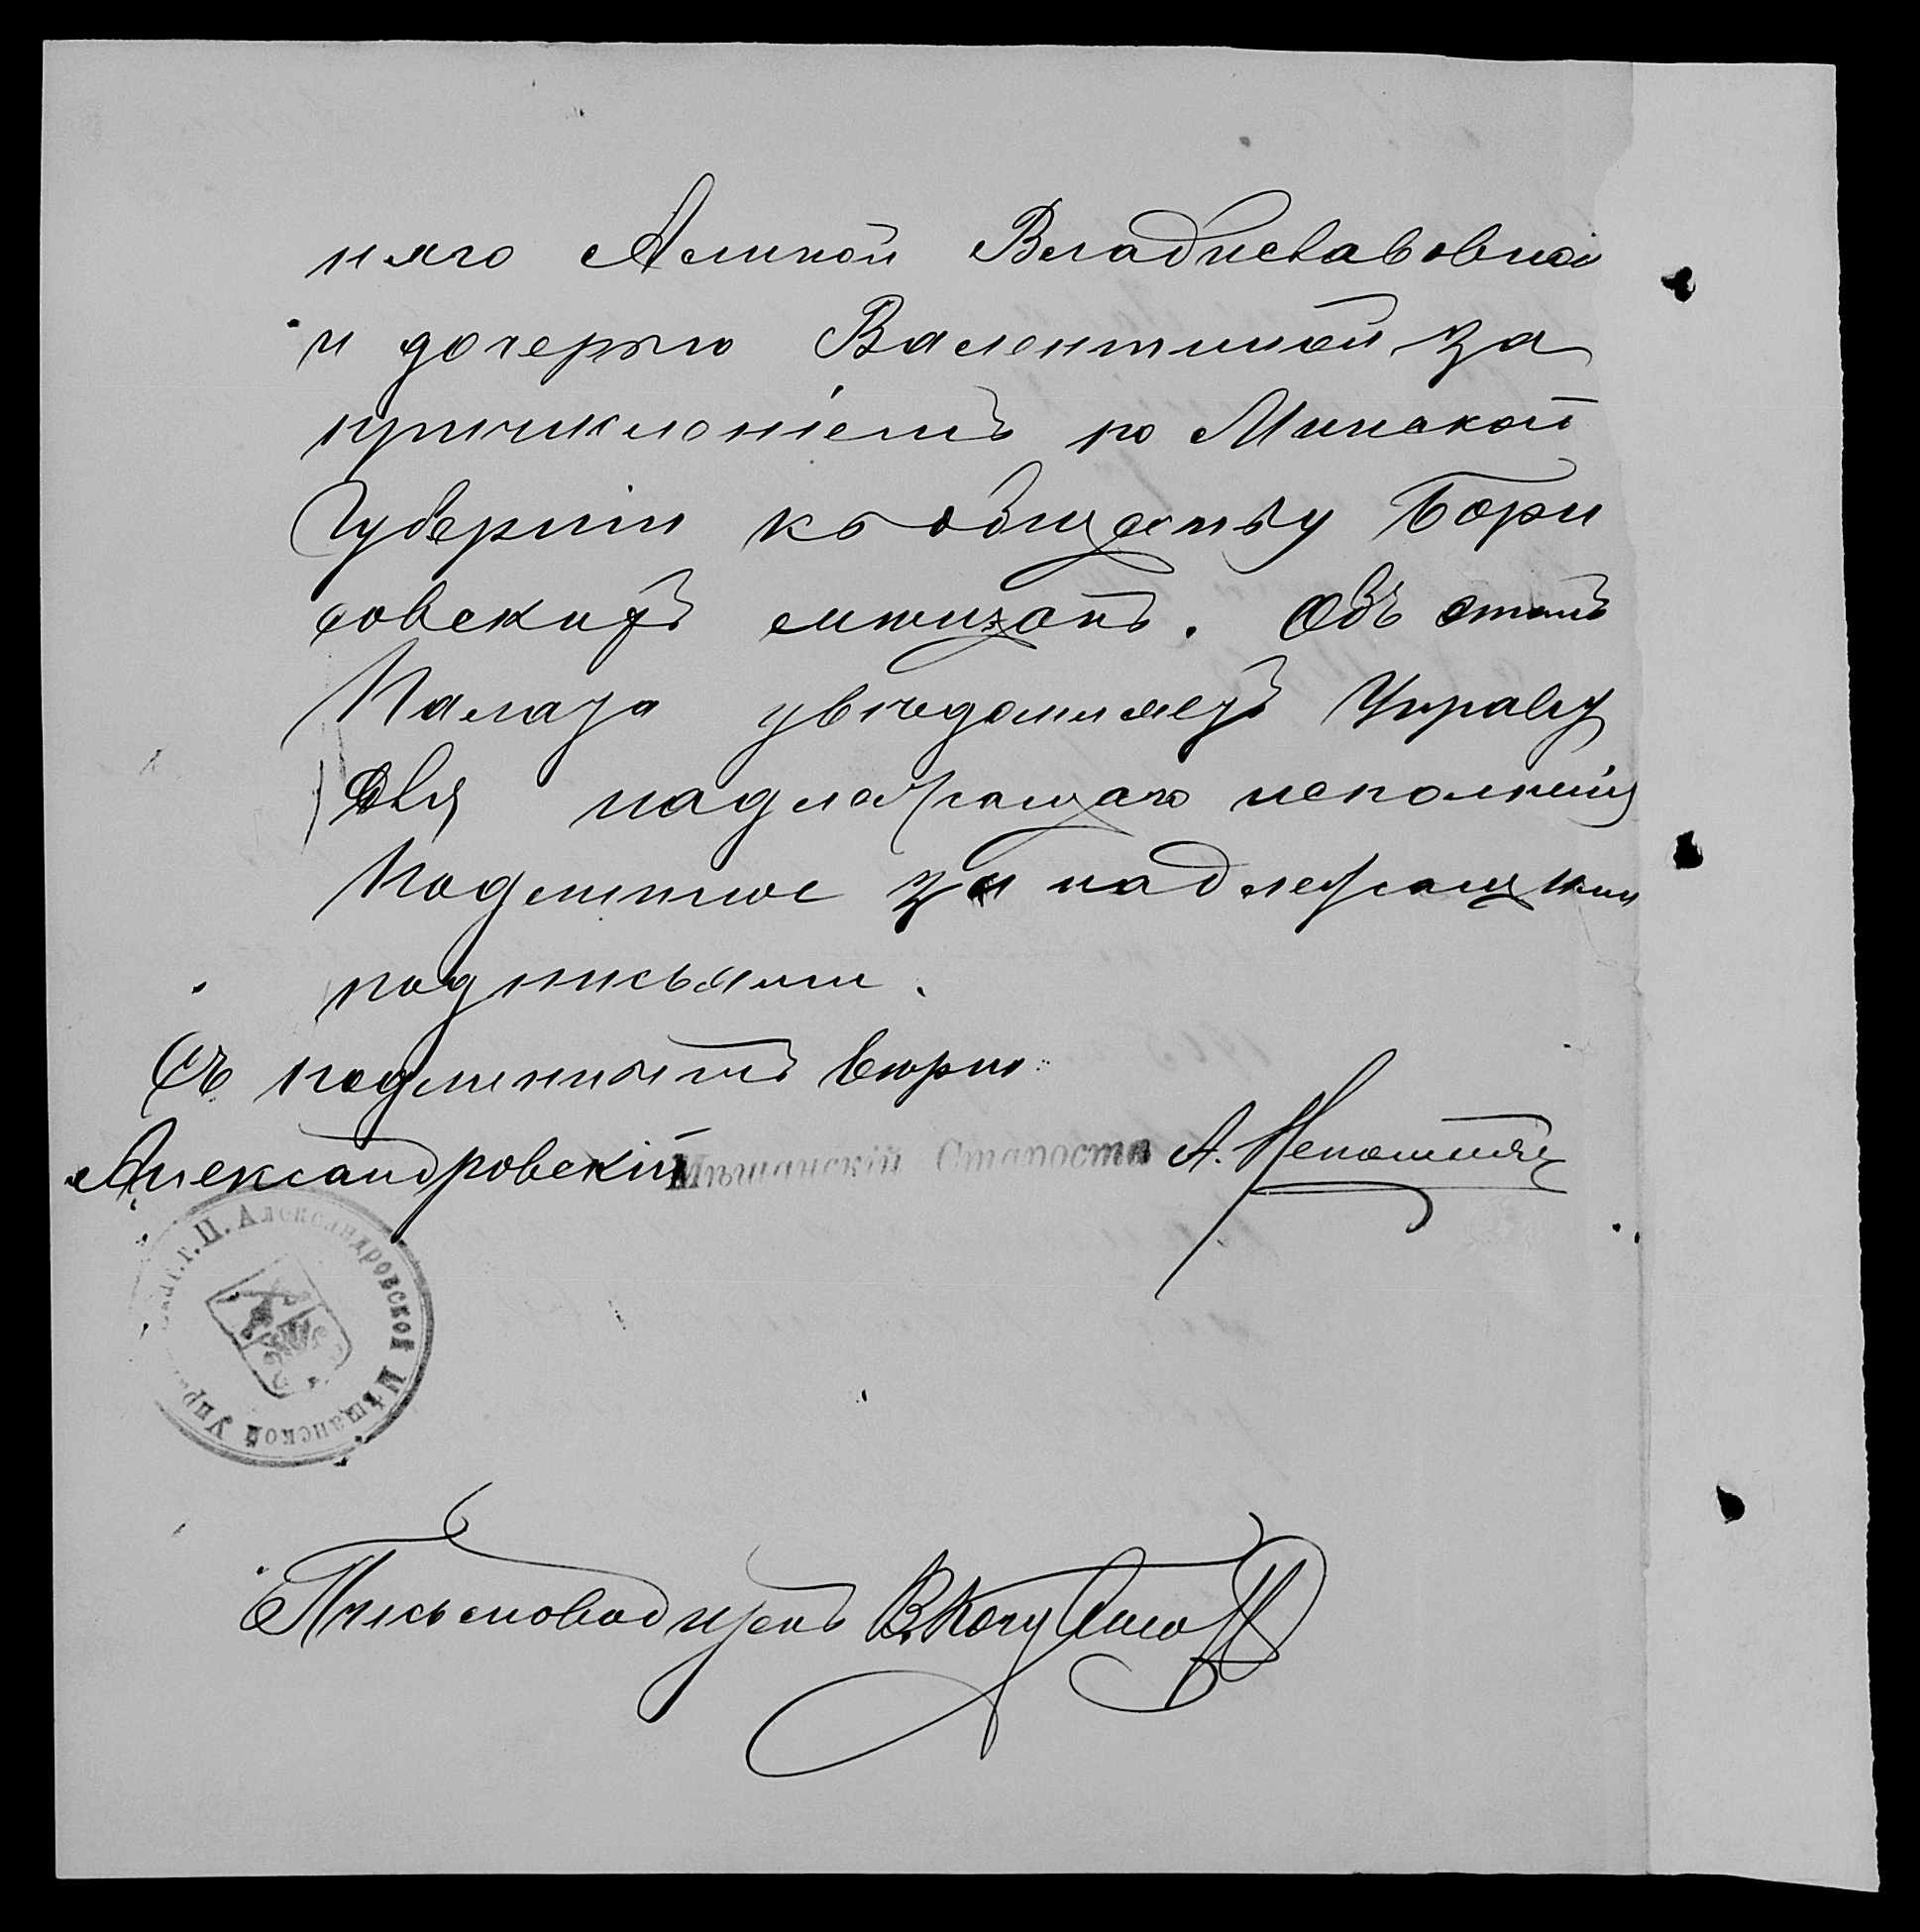 няго Анной Владиславовной
и дочерью Валентиной за
причисленіемъ по Минской
Губерніи къ обществу Бори
совскихъ мѣщанъ. Объ этомъ
Палата увѣдомляетъ Управу
для надлежащаго исполненія
Подлинное за надлежащими
подписями.
Съ подлиннымъ вѣрно:
Александровскій Мѣщанскій Староста А.
Печ. г. П. Александровской Мѣщанской Упр
Письмоводитель В.